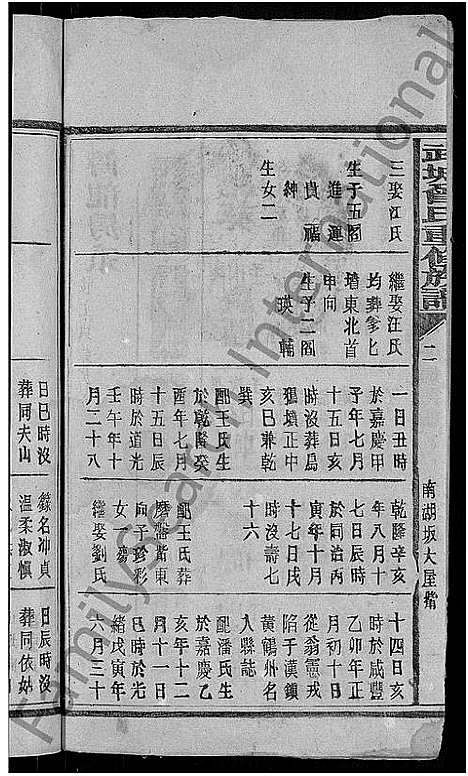 武城曾氏重修族譜
二
南湖坂大屋
三娶江氏
生子五閣
進運
貴福
紳
生女二
繼娶汪氏
均葬爹匕
墖東北首
申向
生子二閣
瑛輔
一日丑時
於嘉慶甲
子年七月
十五日亥
時沒葬烏
獼墳正中
亥巳兼乾
巽
配王氏生
於乾隆癸
酉年七月
十五日辰
時於道光
壬午年十
月二十八
乾隆辛亥
年八月十
七日辰時
於同治丙
寅年十月
十七日戌
時沒壽七
十六
配王氏葬
磨潘嘴東
向子珍彩
女一
繼娶劉氏
十四日亥
時於咸豐
乙卯年正
月初十日
從翁憲戎
陷于漢鎮
黃鶴州名
入縣誌
配潘氏生
於嘉慶乙
亥年十二
月十一日
巳時於光
緒戊寅年
六月三十
日巳時沒
葬同夫山
錄名沖貞
溫柔淑慎
日辰時沒
葬同依姑
FamilySearch International